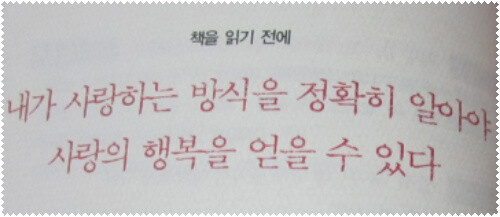 책을 읽기 전에
내가 사랑하는 방식을 정확히 알아야
사랑의 행복을 얻을 수 있다